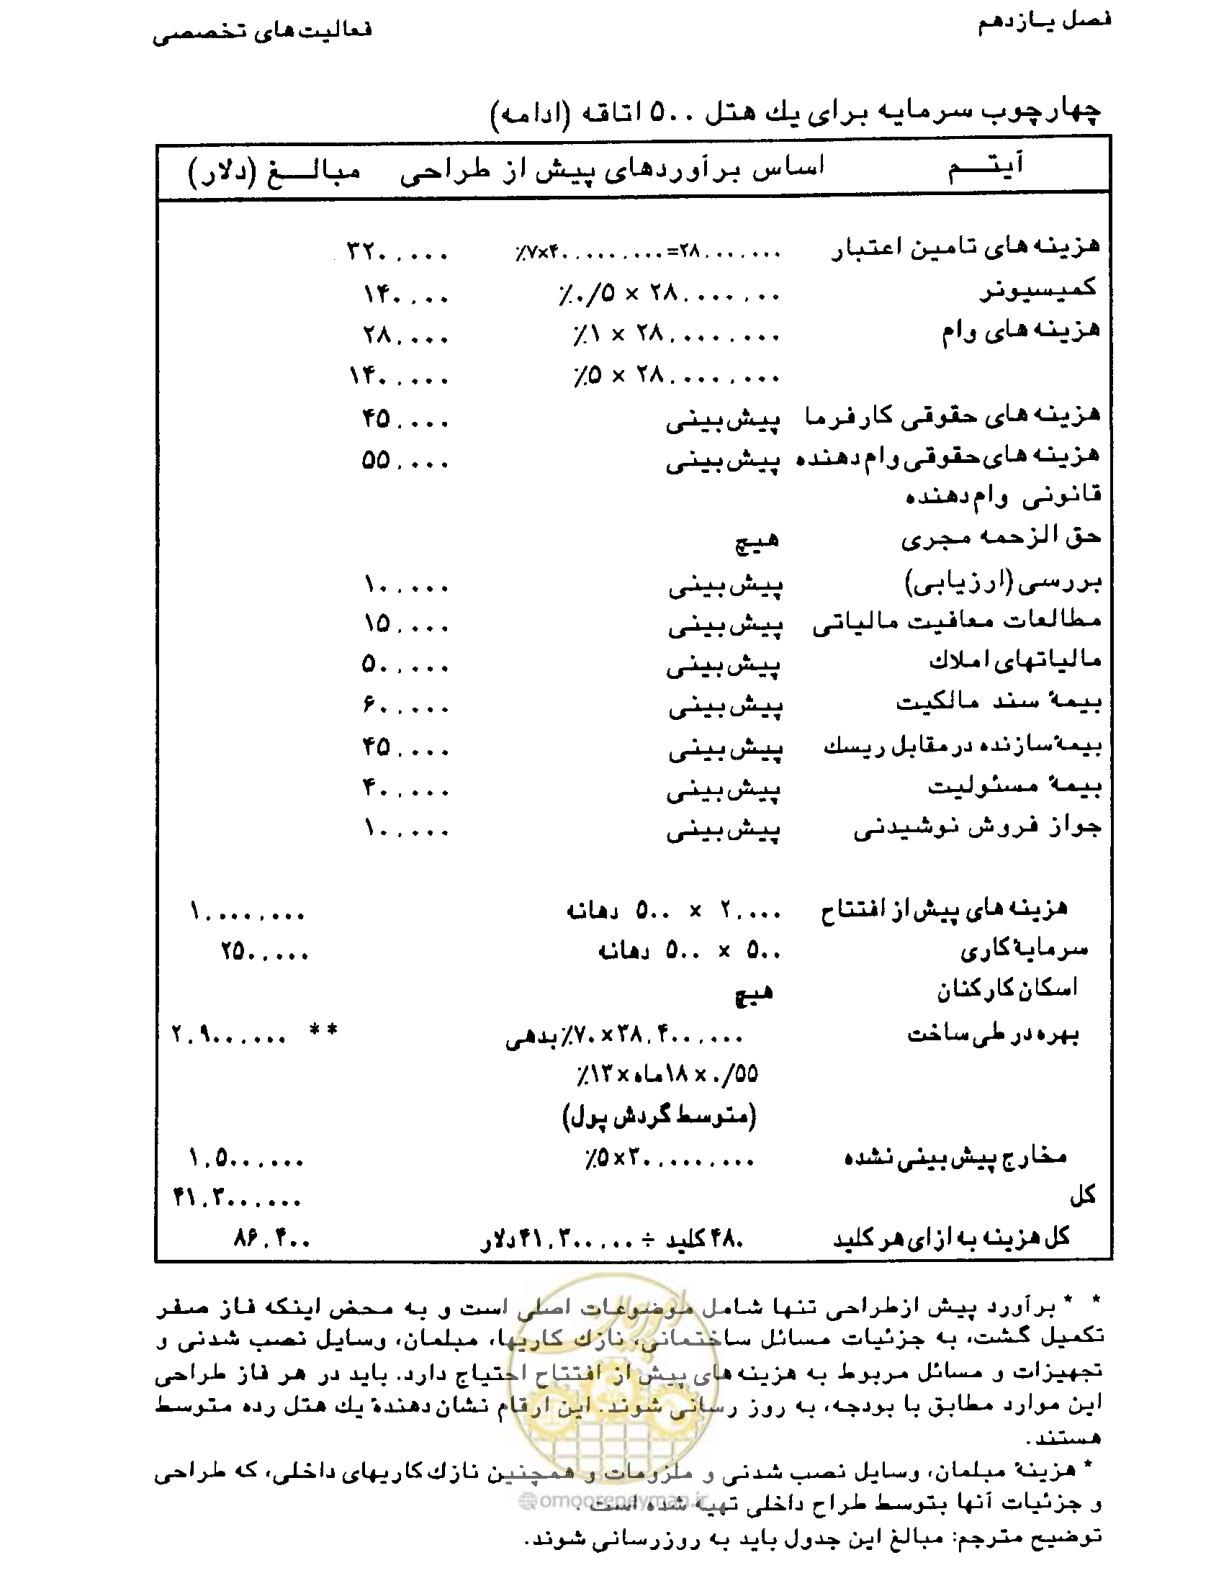 فصل یـازدهم
فعالیت‌های تخصصی
چهارچوب سرمایه برای یك هتل ۵۰۰ اتاقه (ادامه)
آیتــم اساس برآوردهای پیش از طراحی مبالــغ (دلار)
هزینه های تامین اعتبار ٪۷×۴۰۰,۰۰۰,۰۰۰=۲۸,۰۰۰,۰۰۰ ۳۲۰,۰۰۰
کمیسیونر ٪۰/۵ × ۲۸,۰۰۰,۰۰۰ ۱۴۰,۰۰۰
هزینه های وام ٪۱ × ۲۸,۰۰۰,۰۰۰ ۲۸,۰۰۰
٪۵ × ۲۸,۰۰۰,۰۰۰ ۱۴۰,۰۰۰
هزینه های حقوقی کارفرما پیش‌بینی ۴۵,۰۰۰
هزینه های‌حقوقی‌وام‌دهنده پیش‌بینی ۵۵,۰۰۰
قانونی وام‌دهنده
حق الزحمه مجری هیچ
بررسی (ارزیابی) پیش‌بینی ۱۰,۰۰۰
مطالعات معافیت مالیاتی پیش‌بینی ۱۵,۰۰۰
مالیاتهای املاك پیش‌بینی ۵۰,۰۰۰
بیمهٔ سند مالکیت پیش‌بینی ۶۰,۰۰۰
بیمهٔ سازنده درمقابل ریسك پیش‌بینی ۴۵,۰۰۰
بیمهٔ مسئولیت پیش‌بینی ۴۰,۰۰۰
جواز فروش نوشیدنی پیش‌بینی ۱۰,۰۰۰
هزینه های پیش از افتتاح ۲,۰۰۰ × ۵۰۰ دهانه ۱,۰۰۰,۰۰۰
سرمایهٔ کاری ۵۰۰ × ۵۰۰ دهانه ۲۵۰,۰۰۰
اسکان کارکنان هیچ
بهره در طی ساخت ۳۸,۴۰۰,۰۰۰×۷۰٪ بدهی ** ۲,۹۰۰,۰۰۰
۰/۵۵ × ۱۸ماه × ۱۳٪
(متوسط گردش پول)
مخارج پیش‌بینی نشده ٪۵×۳۰,۰۰۰,۰۰۰ ۱,۵۰۰,۰۰۰
کل ۴۱,۳۰۰,۰۰۰
کل هزینه به ازای هر کلید ۴۸۰ کلید ÷ ۴۱,۳۰۰,۰۰۰ دلار ۸۶,۴۰۰
* * برآورد پیش ازطراحی تنها شامل موضوعات اصلی است و به محض اینکه فاز صفر
تکمیل گشت، به جزئیات مسائل ساختمانی، نازك کاریها، مبلمان، وسایل نصب شدنی و
تجهیزات و مسائل مربوط به هزینه های پیش از افتتاح احتیاج دارد. باید در هر فاز طراحی
این موارد مطابق با بودجه، به روز رسانی شوند. این ارقام نشان دهندهٔ یك هتل رده متوسط
هستند.
* هزینهٔ مبلمان، وسایل نصب شدنی و ملزومات و همچنین نازك‌کاریهای داخلی، که طراحی
و جزئیات آنها بتوسط طراح داخلی تهیه شده است.
توضیح مترجم: مبالغ این جدول باید به روزرسانی شوند.
omoorepeyman.ir